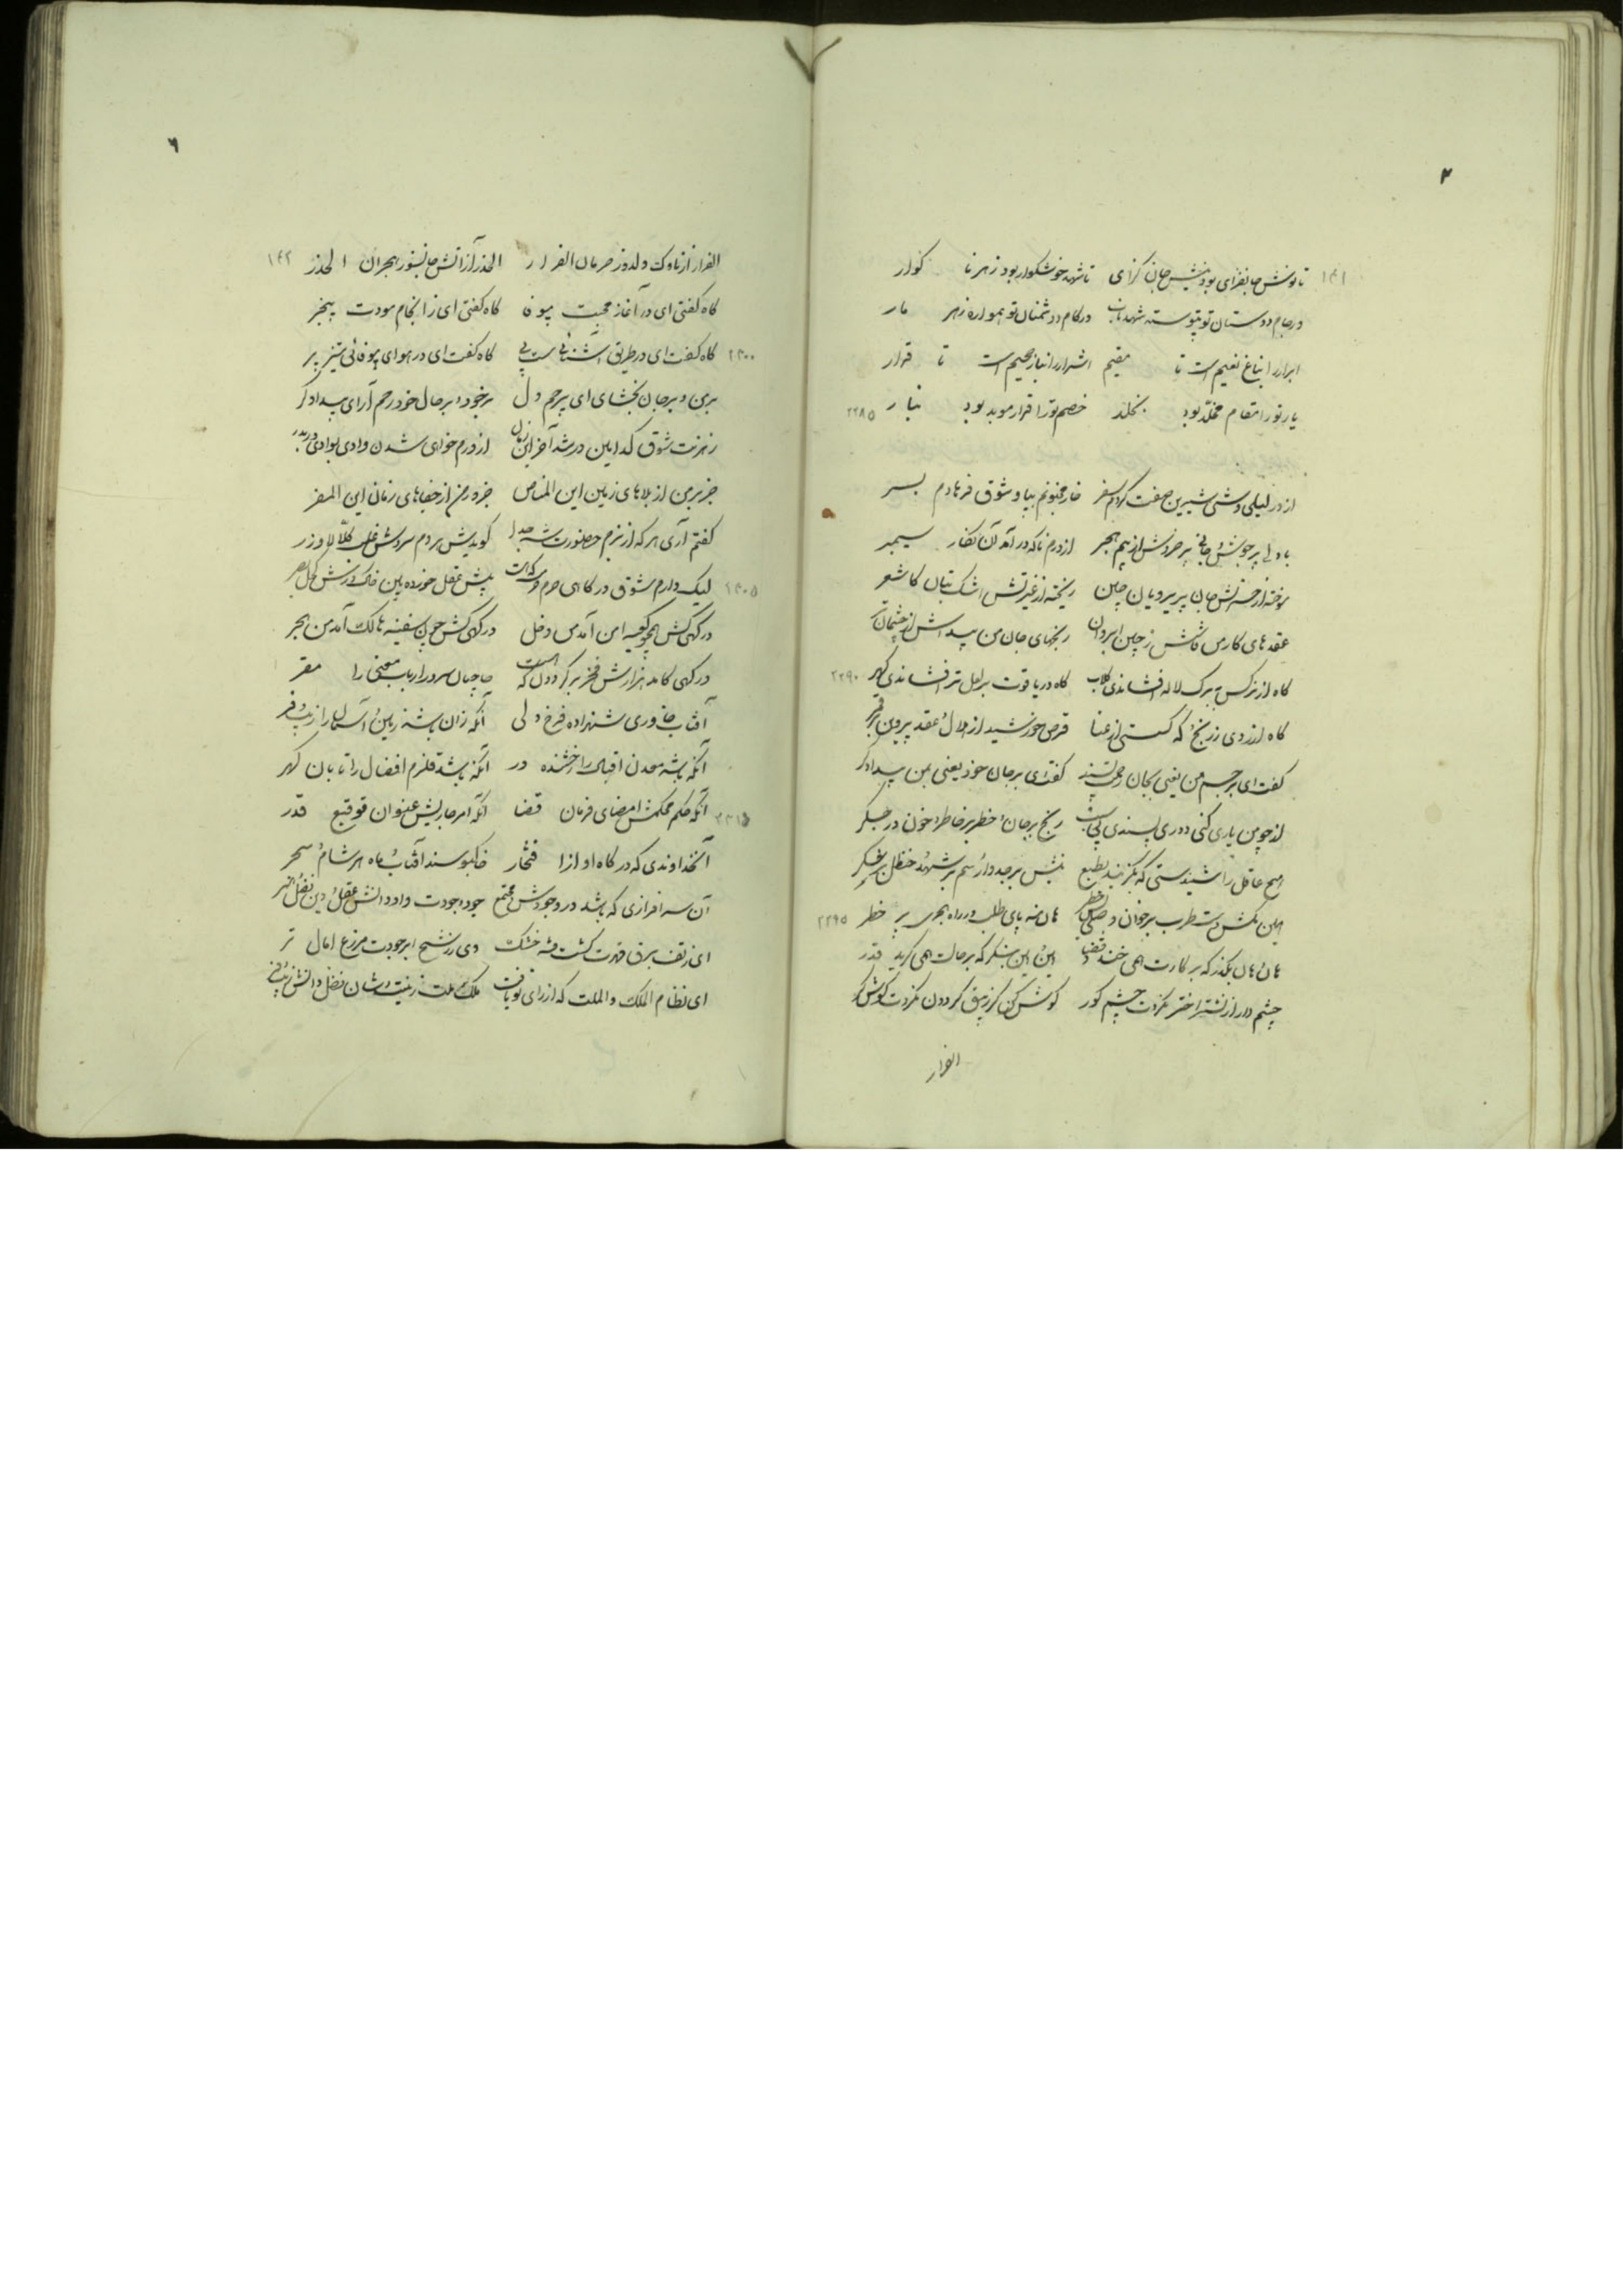 ۳
۱۴۱
تا نوش جانفزای بود نیش جان گزای تا شهد خوشگوار بود زهر نا گوار
در جام دوستان تو پیوسته شهد ناب در کام دشمنان تو همواره زهر مار
ابرار را بباغ نعیم است تا مقیم اشرار را بنار جحیم است تا قرار
یار تو را مقام مخلد بود بخلد خصم تو را قرار موبد بود بنار ۲۲۸۵
از در لیلی وشی شیرین صفت کردم سفر خار مجنونم بپا و شوق فرهادم بسر
با دلی پر جوش جانی پر خروش از بیم هجر از درم ناگه در آمد آن نگار سیمبر
سوخته از حسرتش جان پریرویان چین ریخته از غیرتش اشک بتان کاشغر
عقدهای کار من فاش ز چین ابروان رنجهای جان من پیداش از چشمان تر
گاه از نرگس به برگ لاله افشاندی گلاب گاه در یاقوت بر لعل تر افشاندی گهر ۲۲۹۰
گاه از روی زرنج و گه گسستی از عنا قرص خورشید از هلال و عقد پروین از قمر
گفت ای بر جسم من یعنی بجان رحمت پسند گفت ای بر جان خود یعنی بمن بیدادگر
از چو من یاری کنی دوری پسندی بی سبب رنج بر جان و خطر بر خاطر و خون در جگر
هیچ عاقل را شنیدستی که بگزیند بطبع نیش بر جدوار و سم بر شهد و حنظل بر شکر
هین بکش دست طرب بر خوان وصل هان منه پای طلب در راه هجر پر خطر ۲۲۹۵
هان و هان بگذر که بر کارت همی خندد قضا این و این بنگر که بر حالت همی گرید قدر
چشم دار از نشتر اختر نگردت چشم کور گوش کن کز زیبق گردون نگردت گوش کر
الفرار
۶
۱۴۲
الفرار از ناوک دلدوز حرمان الفرار الحذر از آتش جانسوز هجران الحذر
گاه گفتی ای در آغاز محبت بیوفا گاه گفتی ای ز انجام مودت بیخبر
۲۳۰۰ گاه گفت ای در طریق آشنائی سست پی گاه گفت ای در هوای بیوفائی تیز پر
بر من و بر جان بخشای ای بی رحم دل بر خود و بر حال خود رحم آر ای بیدادگر
رهزنت شوق کدامین در شد آخر این زمان از درم خواهی شدن وادی بوادی در بدر
جز بر من از بلاهای زمین این المناص جز در من از جفاهای زمان این المفر
گفتم آری هر که از بزم حضورت شد جدا گویدش هر دم سروش غیب کلا لا وزر
۲۳۰۵ لیک دارم شوق درگاهی حرم حرمت که هست پیش عقل خورده بین خاک درش کحل بصر
درگهی کش همچو کعبه امن آمد من دخل درگهی کش چون سفینه هالک آمد من هجر
درگهی کامد هزارش فخر بر گردون که هست صاحبان سرور ارباب معنی را مقر
آفتاب خاوری شهزاده فرخ ولی آنکه زان باشد زمین و آسمان را زیب و فر
آنکه باشد معدن اقبال را رخشنده در آنکه باشد قلزم افضال را تابان گهر
۲۳۱۰ آنکه حکم محکمش امضای فرمان قضا آنکه امر جاریش عنوان توقیع قدر
آنخداوندی که درگاه او از افتخار خاکبوسند آفتاب و ماه هر شام و سحر
آن سرافرازی که باشد در وجودش مجتمع جود و جودت داد و دانش عقل و دین فضل و هنر
ای ز تف برق قهرت کشت فتنه خشک وی ز رشح ابر جودت مزرع امال تر
ای نظام الملک و الملت که از رای تو یافت ملک و ملت زینت و شان فضل و دانش زیب و فر